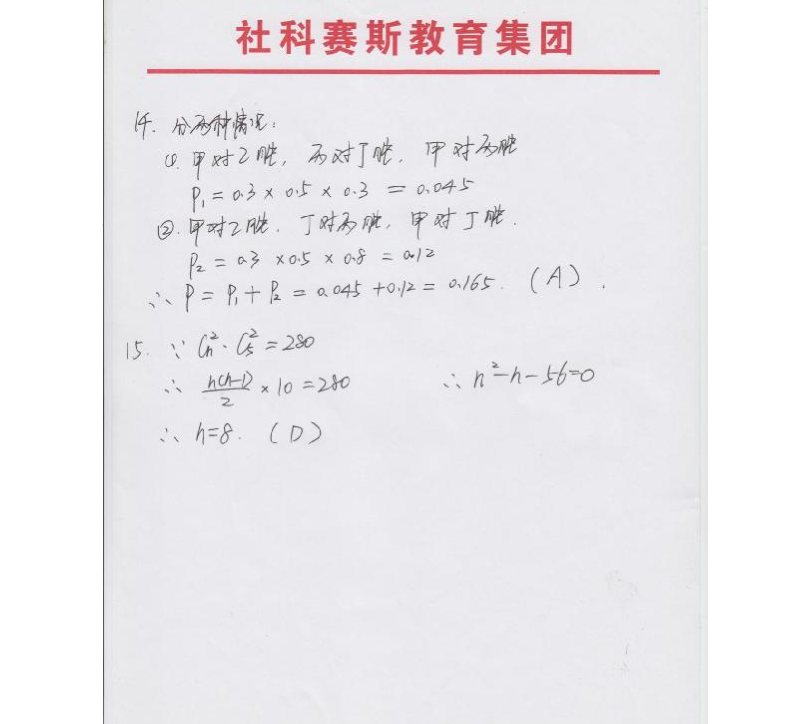 社科赛斯教育集团
14. 分两种情况:
①. 甲对乙胜, 丙对丁胜, 甲对丙胜
P₁ = 0.3 × 0.5 × 0.3 = 0.045
②. 甲对乙胜. 丁对丙胜, 甲对丁胜.
P₂ = 0.3 × 0.5 × 0.8 = 0.12
∴ P = P₁ + P₂ = 0.045 + 0.12 = 0.165. (A).
15. ∵ Cₙ² · C₅² = 280
∴ n(n-1)/2 × 10 = 280 ∴ n² - n - 56 = 0
∴ n = 8. (D)